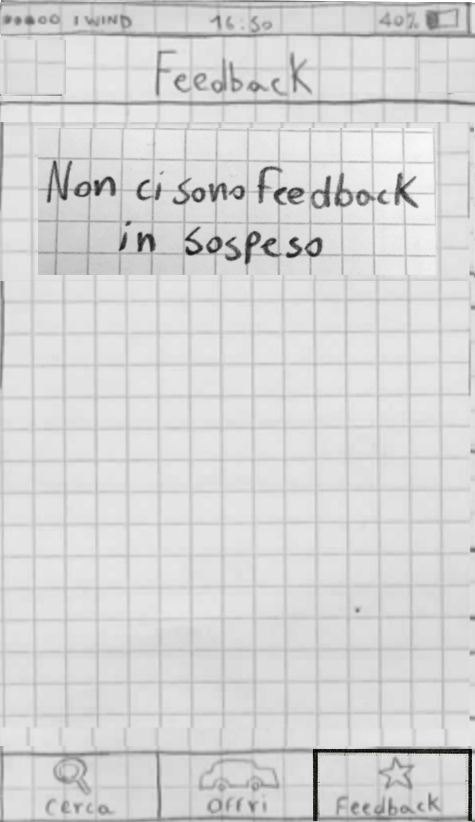 I WIND 16:50 40%
Feedback
Non ci sono feedback
in sospeso
Cerca Offri Feedback